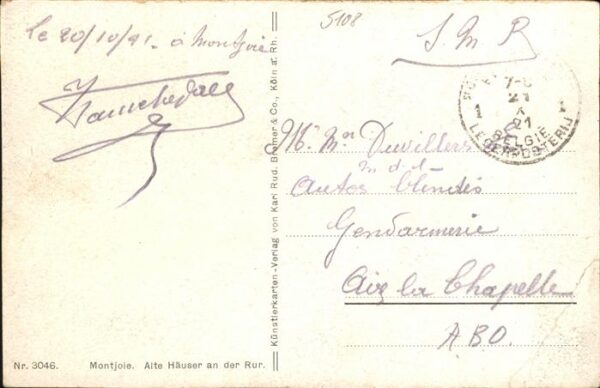 Le 20/10/21. à Montjoie
5108
S. M.
7-8
21
X
21
1 1
BELGIË
LEGERPOSTERIJ
Mr Mr Duvillers
m d l
Autos blindés
Gendarmerie
Aix la Chapelle
ABO.
Künstlerkarten-Verlag von Karl Rud. Bremer & Co., Köln a. Rh.
Nr. 3046. Montjoie. Alte Häuser an der Rur.